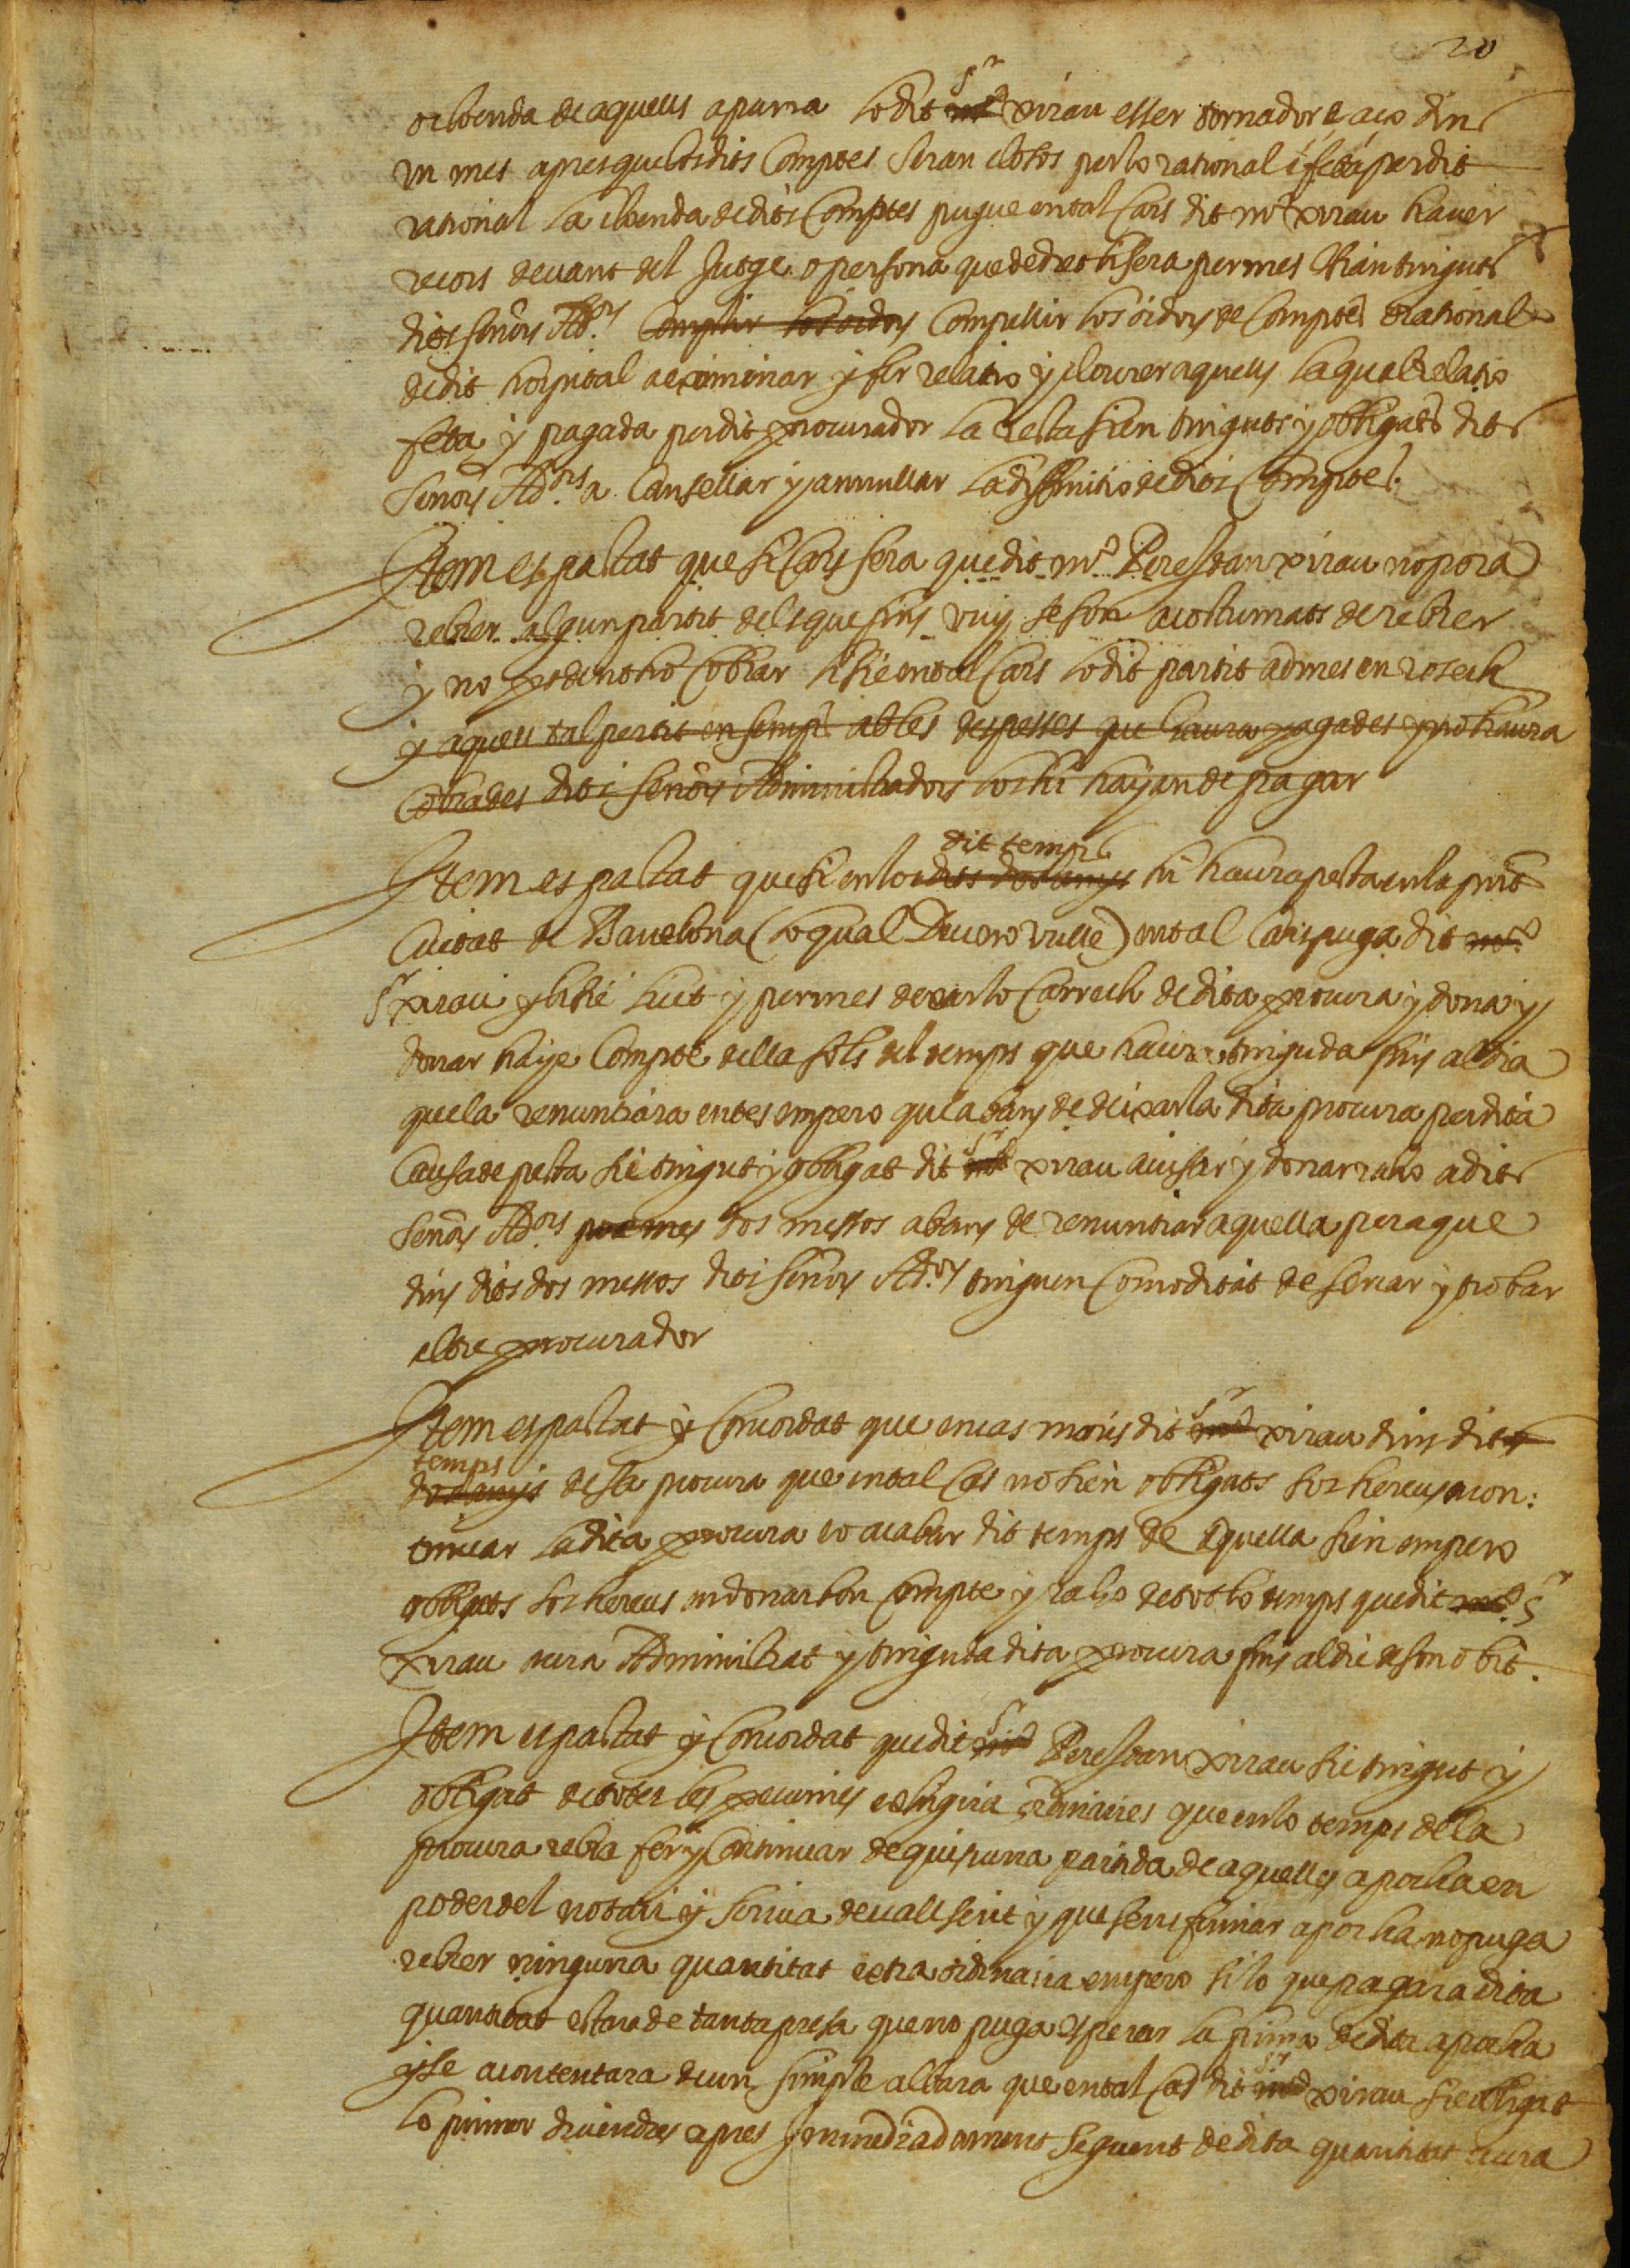 20
o clohenda de aquells apurra lo dit Sr xirau esser tornador e aço dins
un mes apres que los dits Comptes seran closos per lo rational i feta per dit
rational la clohenda de dits Comptes pugue en tal Cars dit mº xirau haver
recors devant del Jutge o persona que de dret li sera permes sian tinguts
dits señors Ad.ors Compellir los oidors Compellir los oidors de Comptes e rational
de dit hospital a examinar y fer relatio y clourer aquells la qual relatio
feta y pagada per dit procurador la resta sien tinguts y obligats dits
señors Ad.ors a Cansellar y annullar la diffinitio de dits Comptes.
Item es pactat que si Cars sera que dit mº Pere Joan xirau no pora
rebrer algun partit dels que fins vuy se son acostumats de rebrer
y no podentho Cobrar li sie en tal Cars lo dit partit admes en rosech
y aquell tal partit ensemps ab les despesses que haura pagades y no haura
Cobrades dits señors Administradors los hi hajan de pagar
dit temps
Item es pactat que si en lo dits dos anys hi haura pesta en la pnt
Ciutat de Barcelona (lo qual Deu no vulle) en tal Cars puga dit mº
Sr xirau y li sie licit y permes dexar lo Carrech de dita procura y dona y
donar haje Compte della sols del temps que haura tinguda fins al dia
que la renuntiara entes empero que abans de deixar la dita procura per dita
Causa de pesta sie tingut y obligat dit Sr xirau avisar y donar raho a dits
señors Ad.ors per mes dos messos abans de renuntiar aquella peraque
dins dits dos messos dits señors Ad.ors tinguen Comoditat de sercar y trobar
altre procurador
Item es pactat y Concordat que en cas moris dit Sr xirau dins dits
temps
dos anys de sa procura que en tal Cas no sien obligats sos hereus a con:
tinuar la dita procura o acabar dit temps de aquella sien empero
obligats sos hereus en donar bon Compte y raho de tot lo temps que dit mº Sr
xirau aura Administrat y tinguda dita procura fins al die de son obit.
Item es pactat y Concordat que dit Sr Pere Joan xirau sie tingut y
obligat de totes les pecunies ordinaries que en lo temps de la
procura rebra fer y Continuar de quiscuna partida de aquelles apocha en
poder del notari y scriva devall scrit y que sens firmar apocha no puga
rebrer ninguna quantitat extraordinaria empero si lo que pagara dita
quantitat estara de tanta pressa que no puga esperar la firma de dita apocha
y se acontentara de un simple albara que en tal Cas dit Sr xirau sie obligat
lo primer divendres apres Immediadament seguent de dita quantitat aura